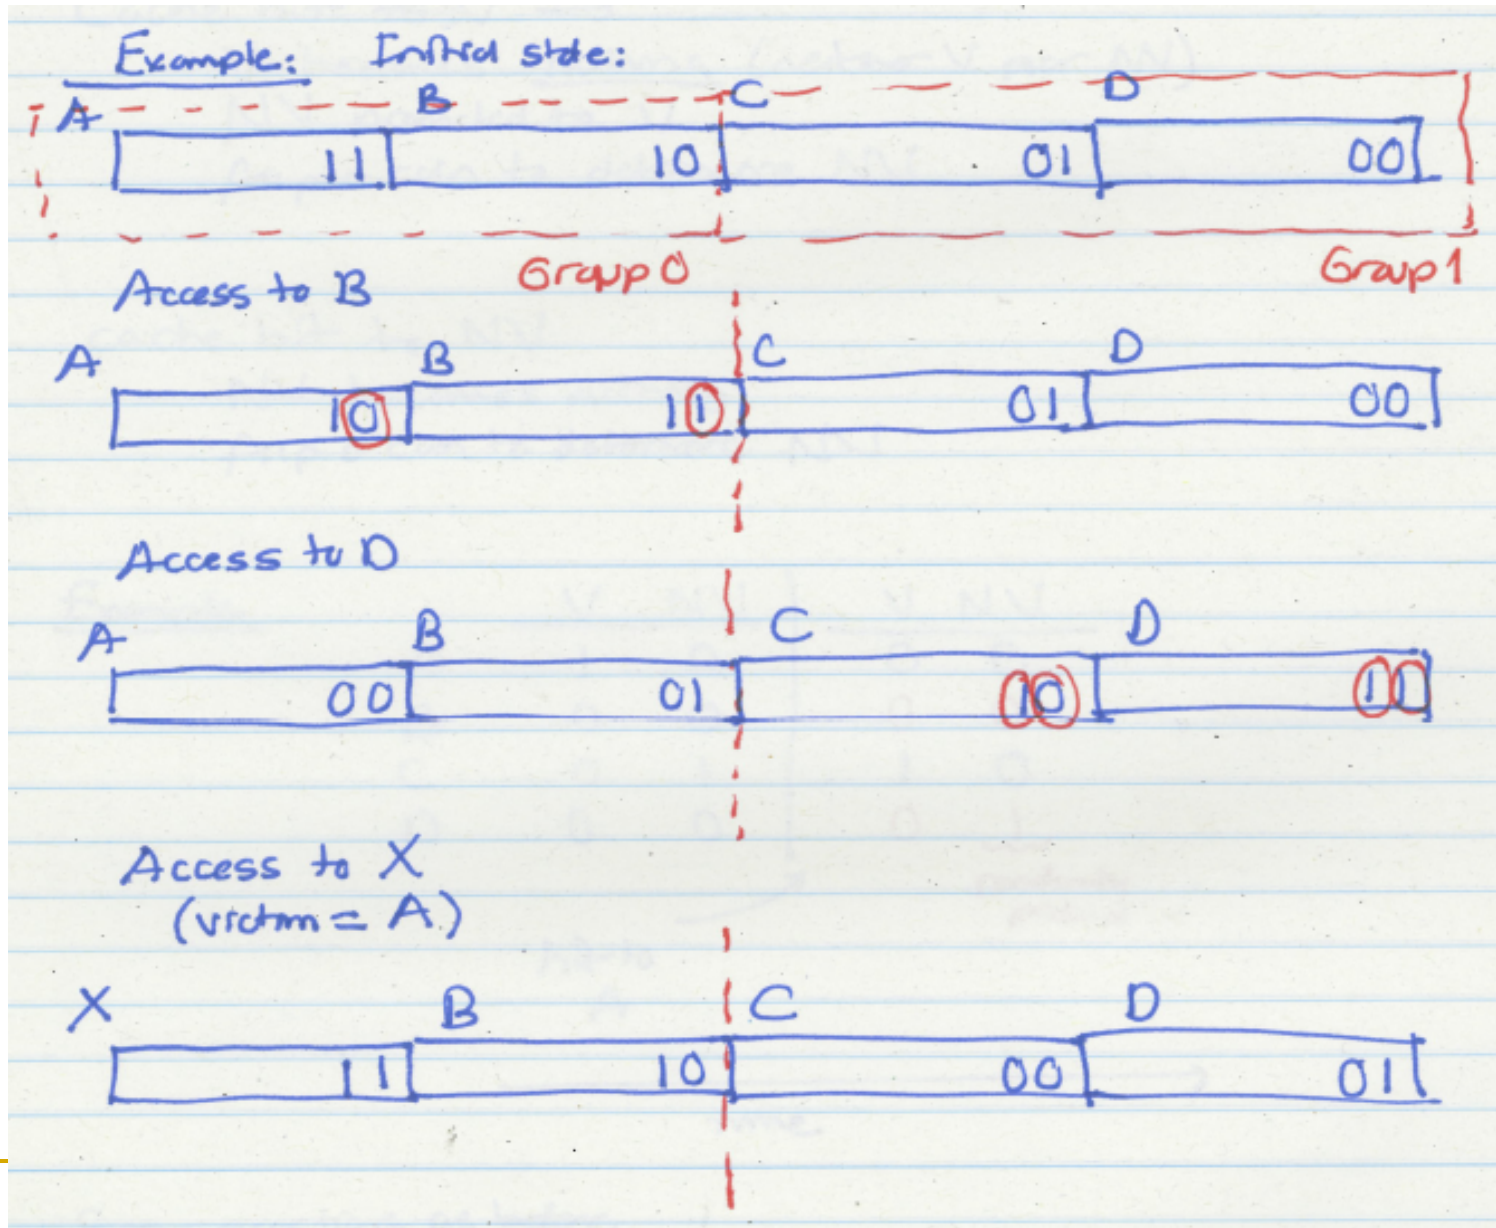 Example: Initial state:
A B C D
11 10 01 00
Group 0 Group 1
Access to B
A B C D
10 11 01 00
Access to D
A B C D
00 01 10 11
Access to X
(victim = A)
X B C D
11 10 00 01